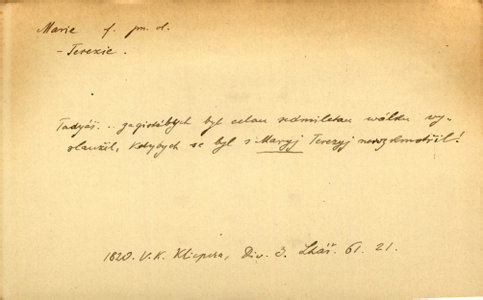 Marie f. jm. vl.
- Terezie.
Tadyáš... za gistébych byl celau sedmiletau wálku wy-
slaužil, kdybych se byl s Maryj Terezyj
1820. V. K. Klicpera, Div. 3. Lhář. 61. 21.